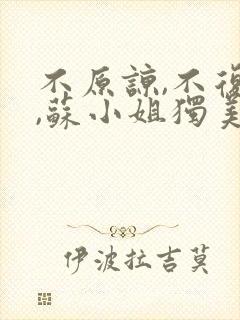 不原諒,不復
,蘇小姐獨美
伊波拉吉莫